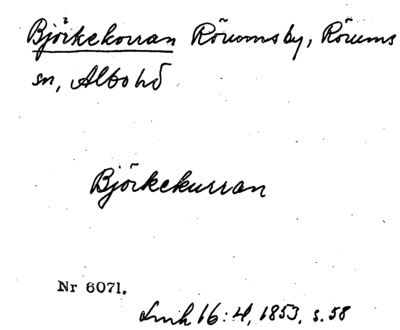 Björkekorran Rörumsby, Rörums
sn, Albo hd
Björkekurran
Nr 6071.
Lmk 16:H, 1853, s. 58